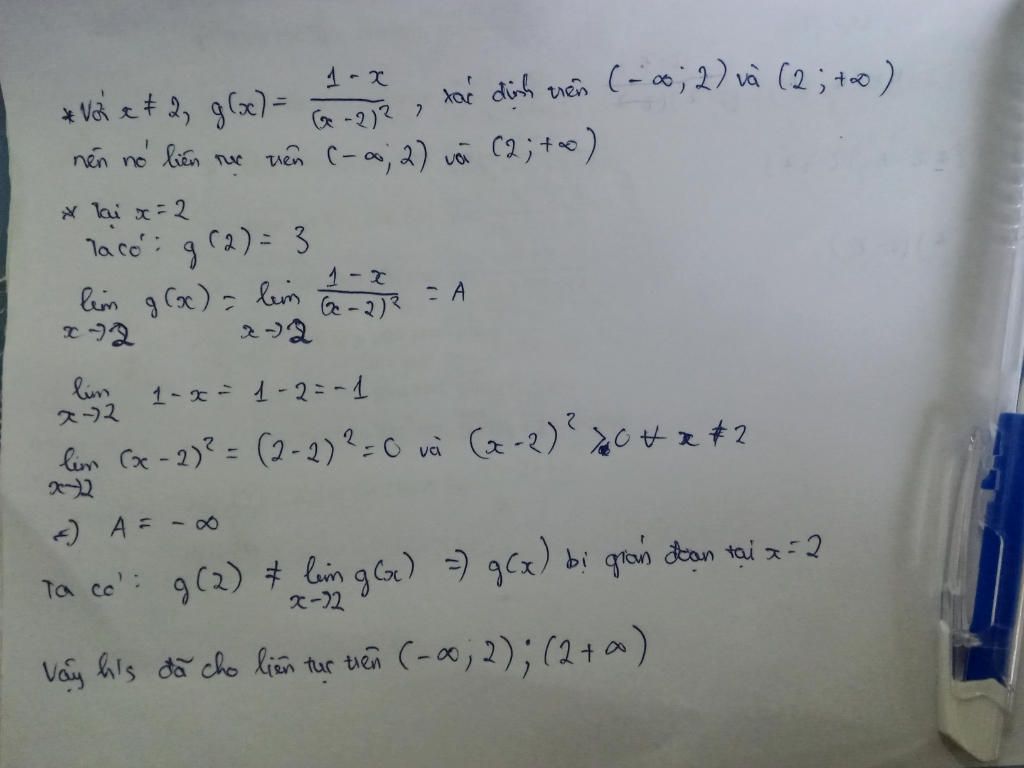 * Với x ≠ 2, g(x) = (1 - x)/(x - 2)², xác định trên (-∞; 2) và (2; +∞)
nên nó liên tục trên (-∞; 2) và (2; +∞)
* Tại x = 2
Ta có: g(2) = 3
lim x→2 g(x) = lim x→2 (1 - x)/(x - 2)² = A
lim x→2 1 - x = 1 - 2 = -1
lim x→2 (x - 2)² = (2 - 2)² = 0 và (x - 2)² > 0 ∀ x ≠ 2
=) A = -∞
Ta có: g(2) ≠ lim x→2 g(x) => g(x) bị gián đoạn tại x = 2
Vậy h/s đã cho liên tục trên (-∞; 2); (2 + ∞)